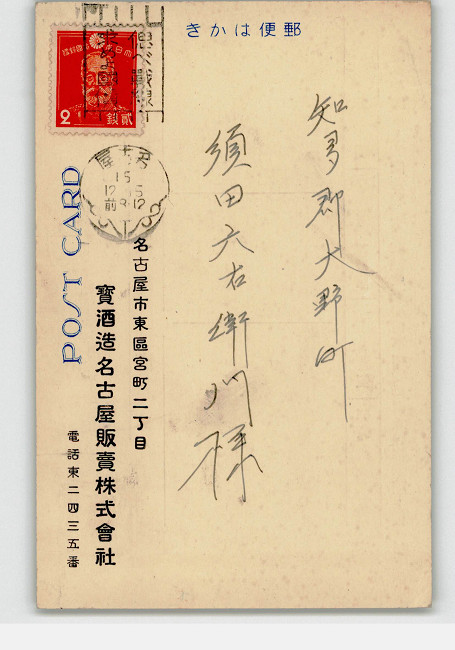 きかは便郵
知多郡大野町
須田六右衛門様
名古屋市東區宮町二丁目
寶酒造名古屋販賣株式會社
電話東二四三五番
POST CARD
2 錢貳
15
12
前8-12